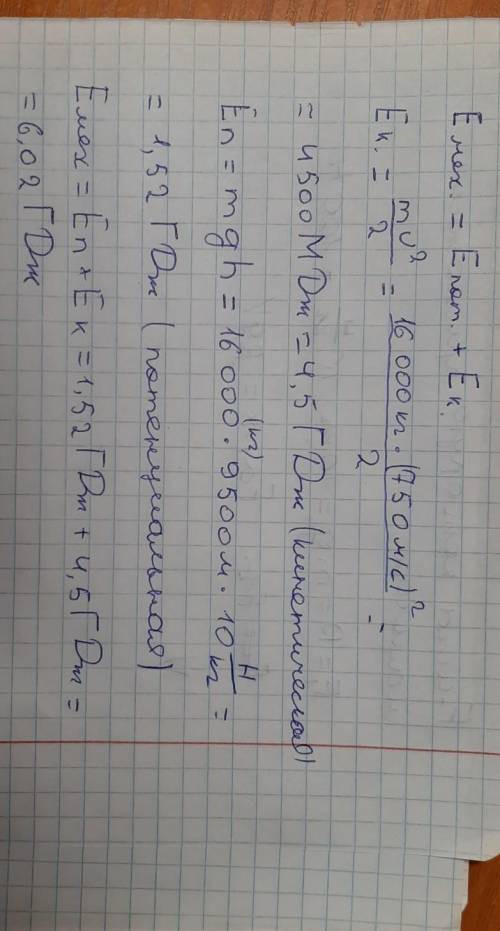 Eмех. = Eпот. + Eк.
Eк. = mv²/2 = 16 000кг · (750м/с)²/2 =
= 4500МДж = 4,5ГДж (кинетическая)
Eп = mgh = 16 000 (кг) · 9500м · 10 Н/кг =
= 1,52 ГДж (потенциальная)
Eмех = Eп + Eк = 1,52ГДж + 4,5ГДж =
= 6,02ГДж